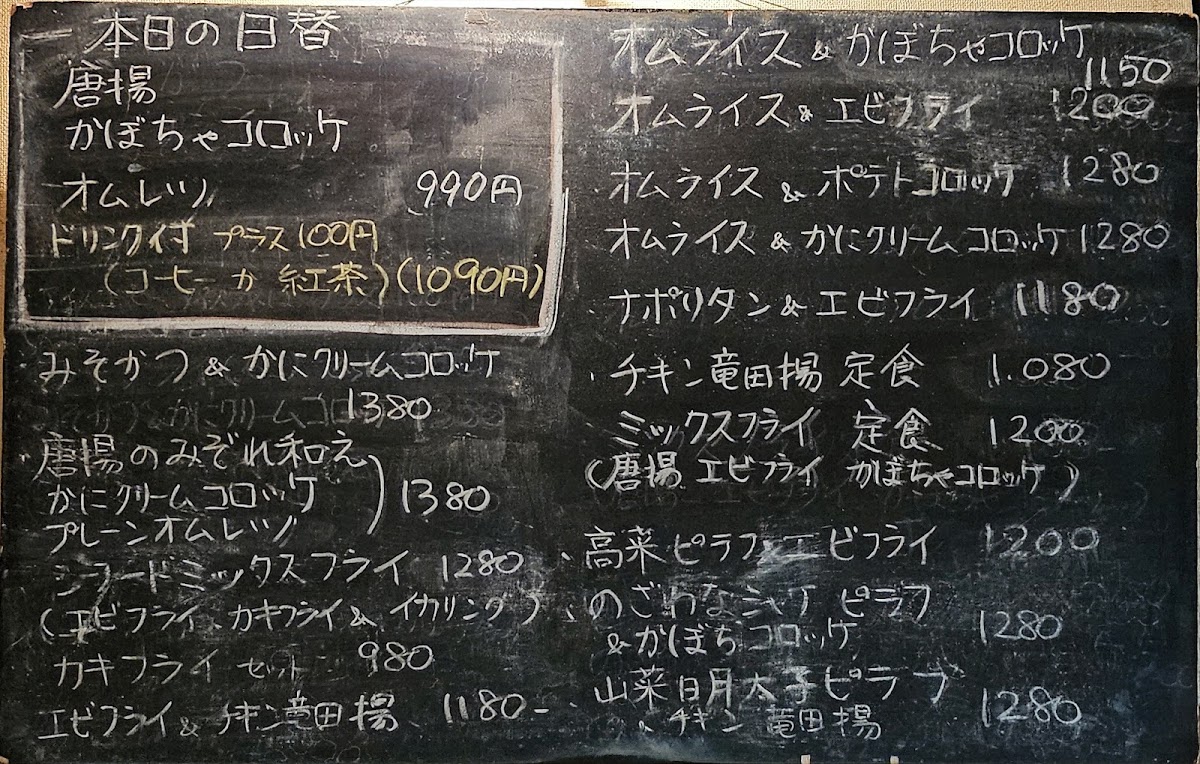 本日の日替
唐揚
かぼちゃコロッケ
オムレツ 990円
ドリンク付 プラス100円
(コーヒー か 紅茶)(1090円)
みそかつ & かにクリームコロッケ
1380
唐揚のみぞれ和え
かにクリームコロッケ 1380
プレーンオムレツ
シフードミックスフライ 1280
(エビフライ カキフライ & イカリング)
カキフライ セット 980
エビフライ & チキン竜田揚 1180
オムライス & かぼちゃコロッケ
1150
オムライス & エビフライ 1200
オムライス & ポテトコロッケ 1280
オムライス & かにクリームコロッケ 1280
ナポリタン & エビフライ 1180
チキン竜田揚 定食 1.080
ミックスフライ 定食 1200
(唐揚 エビフライ かぼちゃコロッケ)
高菜ピラフ & エビフライ 1200
のざわなシャケ ピラフ
& かぼちコロッケ 1280
山菜明太子ピラフ
& チキン 竜田揚 1280